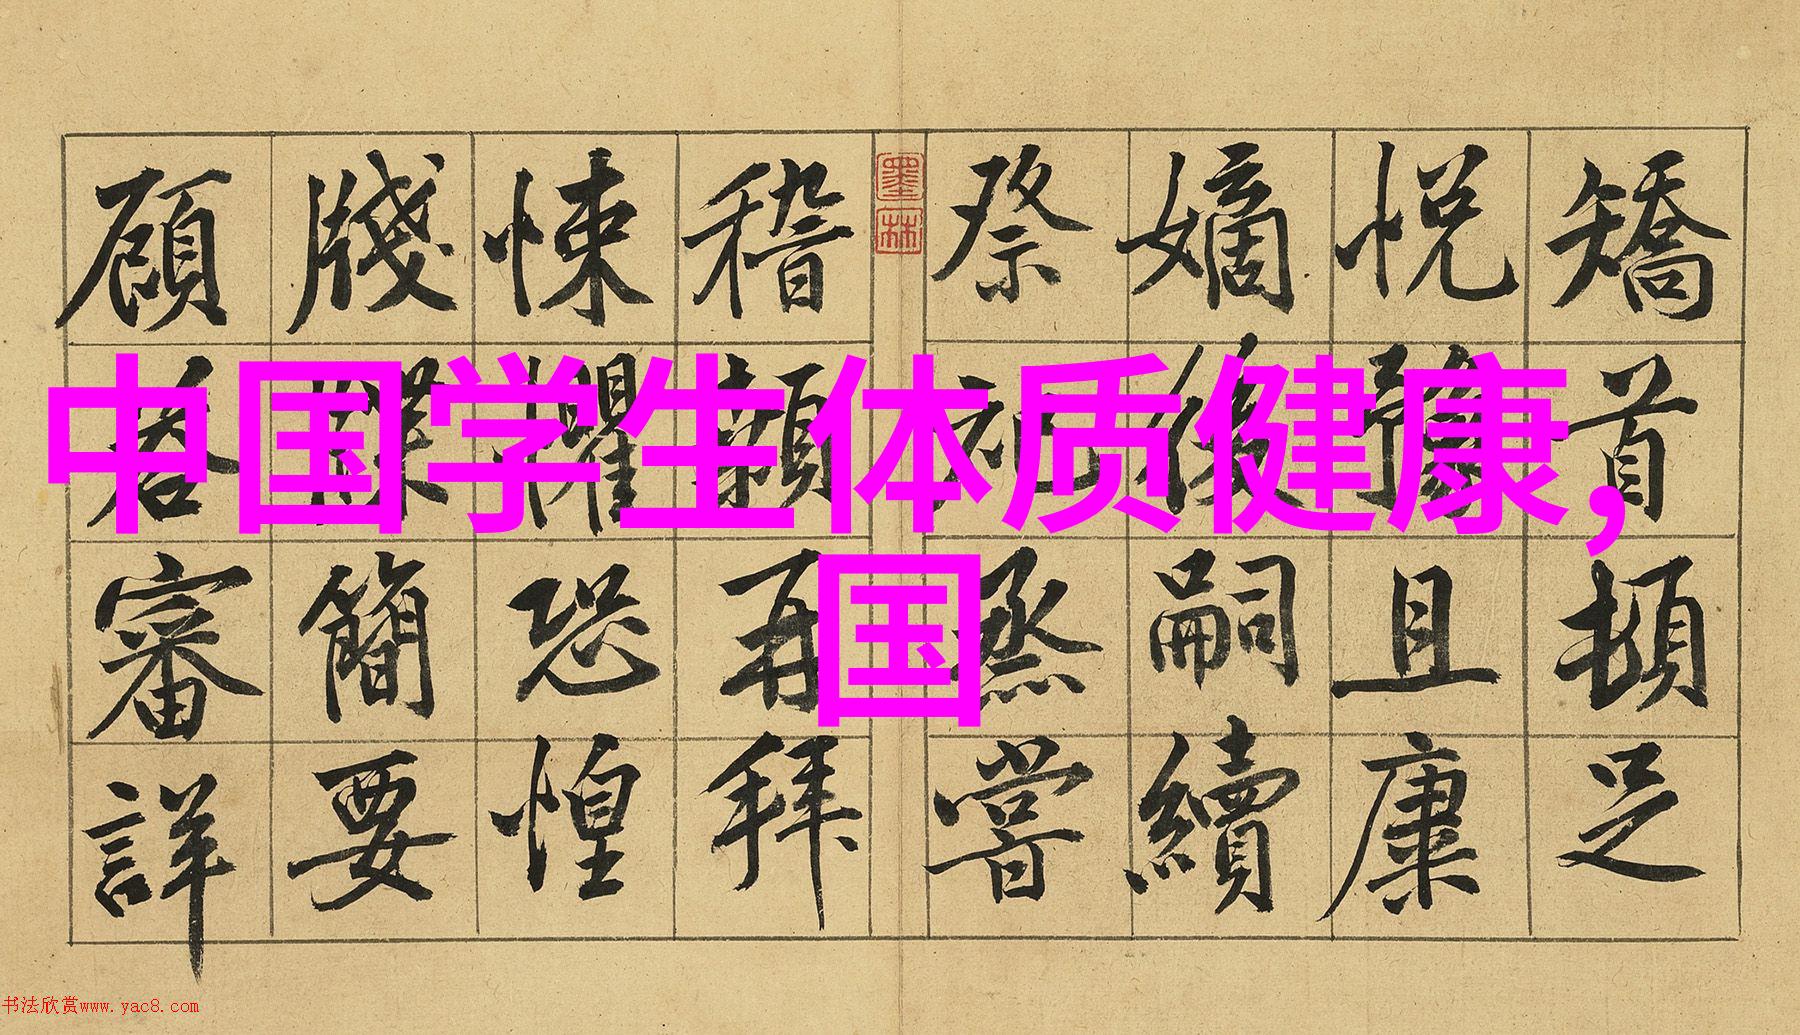 中国学生体质健康,
国
矯首頓足
悅豫且康
嫡後嗣續
祭祀烝嘗
墨林
稽顙再拜
悚懼恐惶
牋牒簡要
顧荅審詳
书法欣赏www.yac8.com